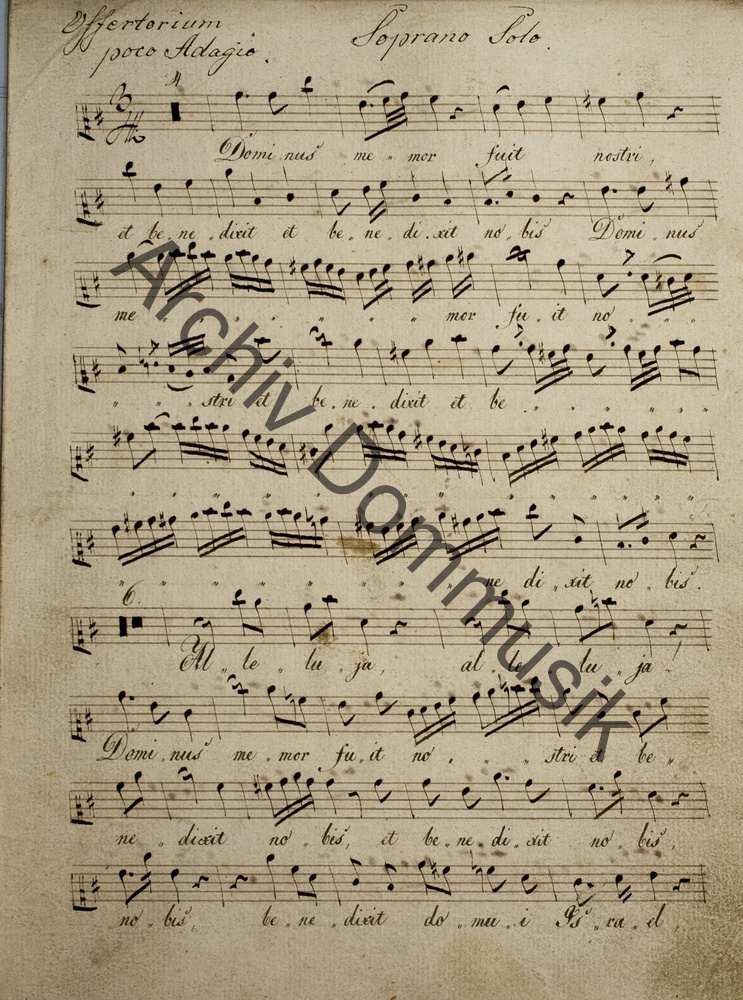 Offertorium Soprano Solo.
poco Adagio.
4
Domi nus me „ mor fuit nostri,
et be. ne. dixit et be. ne. di. xit no. bis Domi. nus
me „ „ „ „ „ mor fu. it no „ „
„ „ stri et be. ne. dixit et be „ „ „ „ „
„ „ „ „ „ „ „ „ „ „ „
„ „ „ „ „ „ „ „ ne di „ xit no „ bis.
6.
Al „ le „ lu „ ja, al „ le „ lu „ ja!
Domi „ nus me „ mor fu „ it no „ „ „ stri et be „
ne „ dixit no „ bis, et be „ ne „ di „ xit no „ bis,
no „ bis, be „ ne „ dixit do „ mu „ i Is „ ra „ el,
Archiv Dommusik